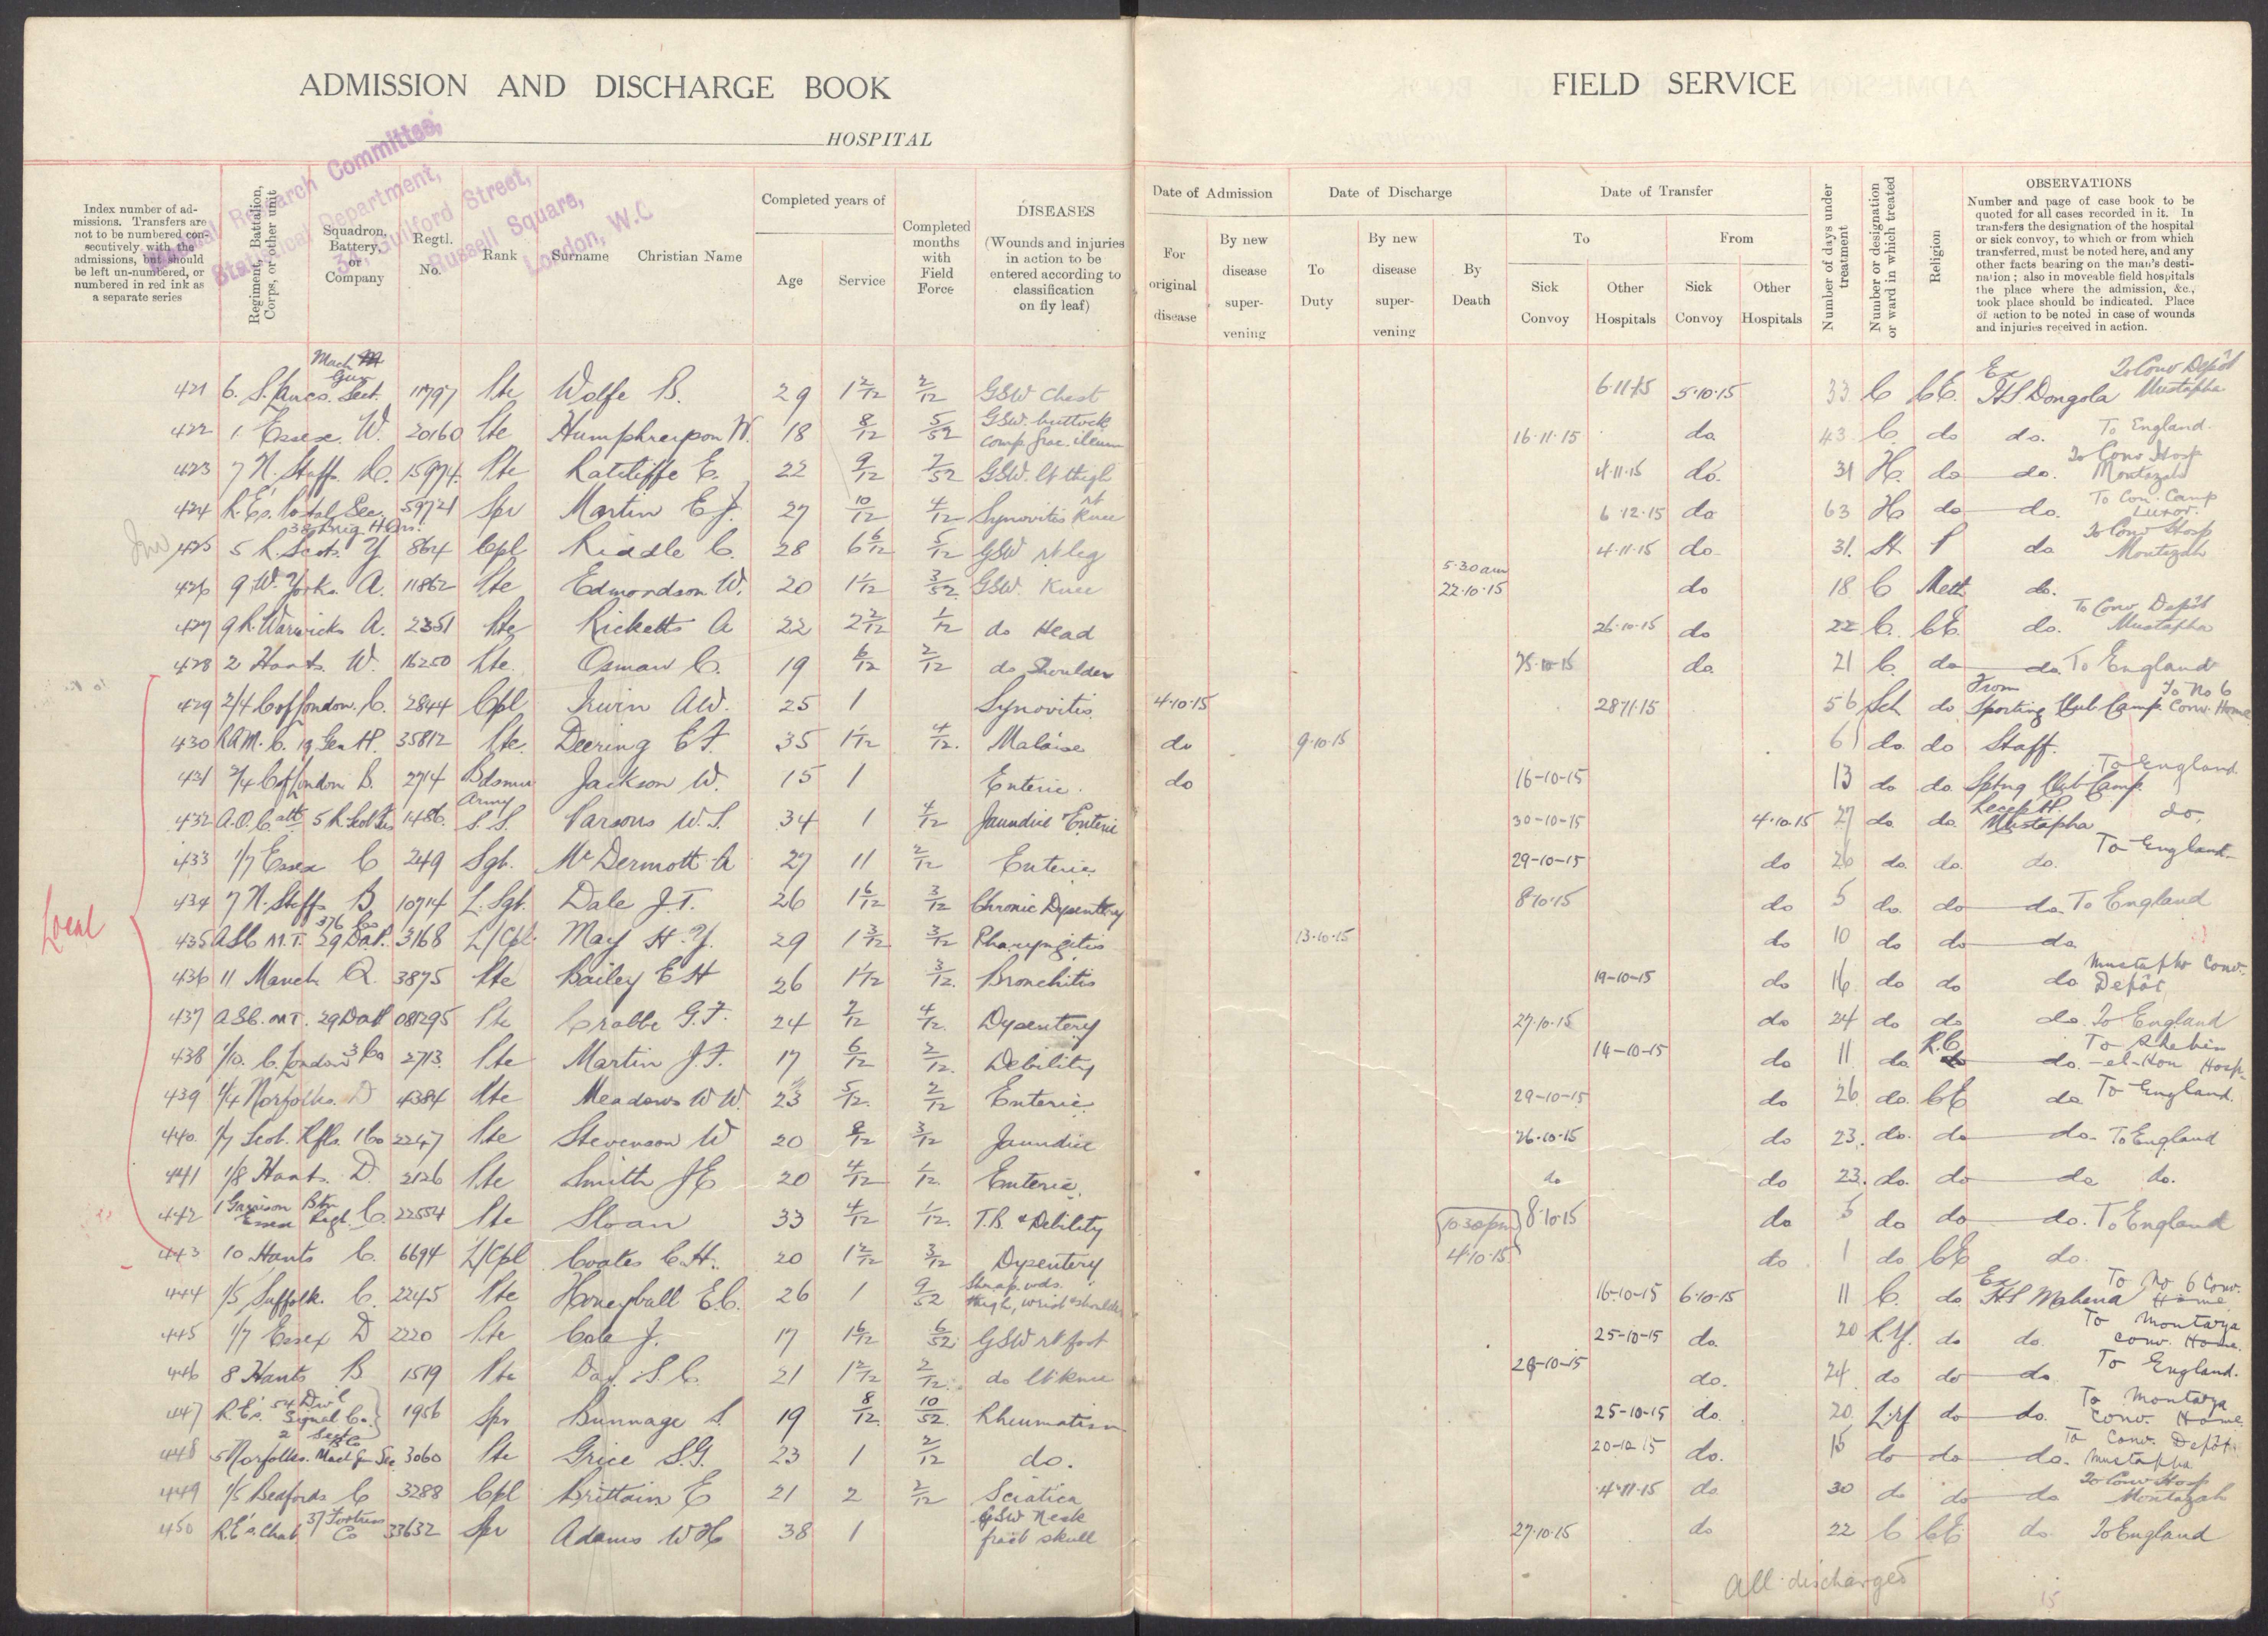 ADMISSION AND DISCHARGE BOOK
HOSPITAL
FIELD SERVICE
Research Committee,
Statistical Department,
Guilford Street,
Russell Square,
London, W.C
Index number of admissions. Transfers are not to be numbered consecutively with the admissions, but should be left un-numbered, or numbered in red ink as a separate series
Regiment, Battalion, Corps, or other unit
Squadron, Battery, or Company
Regtl. No.
Rank
Surname Christian Name
Completed years of
Age
Service
Completed months with Field Force
DISEASES
(Wounds and injuries in action to be entered according to classification on fly leaf)
Date of Admission
For original disease
By new disease supervening
Date of Discharge
To Duty
By new disease supervening
By Death
Date of Transfer
To
Sick Convoy
Other Hospitals
From
Sick Convoy
Other Hospitals
Number of days under treatment
Number or designation or ward in which treated
Religion
OBSERVATIONS
Number and page of case book to be quoted for all cases recorded in it. In transfers the designation of the hospital or sick convoy, to which or from which transferred, must be noted here, and any other facts bearing on the man's destination; also in moveable field hospitals the place where the admission, &c., took place should be indicated. Place of action to be noted in case of wounds and injuries received in action.
421 6. S. Lancs. Mach Gun Sect. 11797 Pte Wolfe B. 29 1 2/12 2/12 GSW Chest 6·11·15 5·10·15 33 C CE. Ex HS. Dongola To Conv Depôt Mustapha
422 1. Essex. W. 20160 Pte Humphreyson W. 18 8/12 5/52 GSW. buttock comp. frac. ileum 16·11·15 do. 43 C. do do. To England.
423 7 N. Staffs. 15974 Pte Ratcliffe E. 22 9/12 7/52 GSW. lt thigh 4·11·15 do. 31 H. do do. To Conv Hosp Montazah
424 R.E's. Postal Sec. 59721 Spr Martin E J. 27 10/12 4/12 Synovitis rt Knee 6·12·15 do 63 H do do. To Con. Camp Luxor.
425 5 R. Scots. Y 864 Cpl Riddle C. 28 6 6/12 5/12 GSW rt leg 4·11·15 do 31. H P do To Conv Hosp Montazah
426 9 W. Yorks. A. 11862 Pte Edmondson W. 20 1 1/12 3/52 GSW. Knee 5·30am 22·10·15 do 18 C Meth do.
427 9 R. Warwicks A. 2351 Pte Ricketts A 22 2 2/12 1/12 do Head 26·10·15 do 22 C. CE. do. To Conv. Depôt Mustapha
428 2 Hants. W. 16250 Pte. Osman C. 19 6/12 2/12 do Shoulder 25·10·15 do. 21 C. do do. To England
Local
429 2/4 C of London. C. 2844 Cpl Irwin AW. 25 1 Synovitis 4·10·15 28·11·15 56 Sch do From Sporting Club Camp. To No 6 Conv. Home
430 RAM.C. 19 Gen H. 35812 Pte. Deering E F. 35 1 1/12 4/12. Malaise do 9·10·15 6 do. do Staff.
431 2/4 C of London B. 2714 Bdsman Jackson W. 15 1 Enteric. do 16-10-15 13 do do. Sptng Club Camp. To England
432 A.O.C att 5 R. Scot Fus 1486. Army S.S. Parsons W.S. 34 1 4/12 Jaundice Enteric 30-10-15 4·10·15 27 do. do. Recep H. Mustapha do.
433 1/7 Essex C 249 Sgt. McDermott A 27 11 2/12 Enteric 29-10-15 do 26 do. do. do. To England
434 7 N. Staffs B. 10714 L. Sgt. Dale J.T. 26 1 6/12 3/12 Chronic Dysentery 8·10·15 do 5 do. do do. To England
435 ASC M.T. 376 Co 29 Da P. 3168 L/Cpl. May H. Y. 29 1 3/12 3/12 Pharyngitis 13·10·15 do 10 do do do
436 11 Manch. 3875 Pte Bailey E H 26 1 1/12 3/12. Bronchitis 19-10-15 do 16. do do do Mustapha Conv. Depôt
437 ASC. MT. 29 Da P 081295 Pte Crabbe G.F. 24 7/12 4/12. Dysentery 27·10·15 do 24 do do do. To England
438 1/10. C. London 3 Co 2713. Pte Martin J.F. 17 6/12 2/12. Debility 14-10-15 do 11 do. R.C do. To Shebin-el-Kom Hosp.
439 1/4 Norfolks. D 4384 Pte Meadows W W. 23 5/12. 2/12 Enteric 29-10-15 do 26. do. CE do To England.
440. 1/7 Scot. Rfls. 1 Co 2247 Pte Stevenson W 20 8/12 3/12 Jaundice 26·10·15 do 23. do. do do. To England
441 1/8 Hants. D. 2126 Pte Smith J E 20 4/12 1/12. Enteric. do do 23. do. do do do.
442 1 Garrison Btn Essex Regt. C. 22554 Pte Sloan 33 4/12 1/12. T.B. & Debility 8·10·15 do 5 do do do. To England
443 10 Hants C. 6694 L/Cpl Coates C.H. 20 1 2/12 3/12 Dysentery 10 30pm 4·10·15 do 1 do CE do.
444 1/5 Suffolk. C. 2245 Pte Honeyball E.C. 26 1 9/52 Shrap. wds. thigh, wrist & shoulder 16-10-15 6·10·15 11 C. do Ex HS Mahena To No 6 Conv. Home
445 1/7 Essex D 2220 Pte Cole J. 17 1 6/12 6/52 GSW rt foot 25-10-15 do. 20 R.Y. do do. To Montazа Conv. Home.
446 8 Hants B 1519 Pte Day. S.C. 21 1 2/12 2/12. do lt knee 28-10-15 do. 24 do do do To England.
447 R.E's. 54 Div'l Signal Co. 2 Sect 1956 Spr Bunnage S. 19 8/12. 10/52. Rheumatism 25-10-15 do. 20. do do. To Montaza Conv. Home
448 5 Norfolks. Mach Gun Sec 3060 Pte Grice S.G. 23 1 2/12 do. do. 15 do do do. To Conv. Depôt Mustapha
449 1/5 Bedfords C 3288 Cpl Brittain E 21 2 2/12 Sciatica 4·11·15 do 30 do do do To Conv Hosp Montazah
450 R.E's. Chat. 37 Fortress Co 33632 Spr Adams W H 38 1 GSW Neck fract skull 27·10·15 do 22 C CE. do. To England
All discharged
15